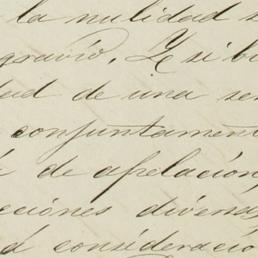 la nulidad s
gravio. Y si b
dad de una se
conjuntament
de apelación
cciones divers
d consideració